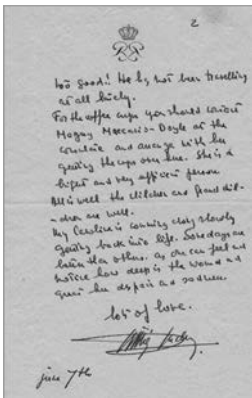 2
too good!! He has not been travelling
at all lately.
For the coffee cups you should contact
Meguy Maccario-Doyle at the
consulate and arrange with her
getting the cups over here. She is a
bright and very efficient person.
All is well the children and grand chil-
-dren are well.
My Caroline is coming very slowly
getting back into life. Some days are
better than others. as one can feel and
notice how deep is the wound and
great her despair and sadness.
lots of love.
june 7th